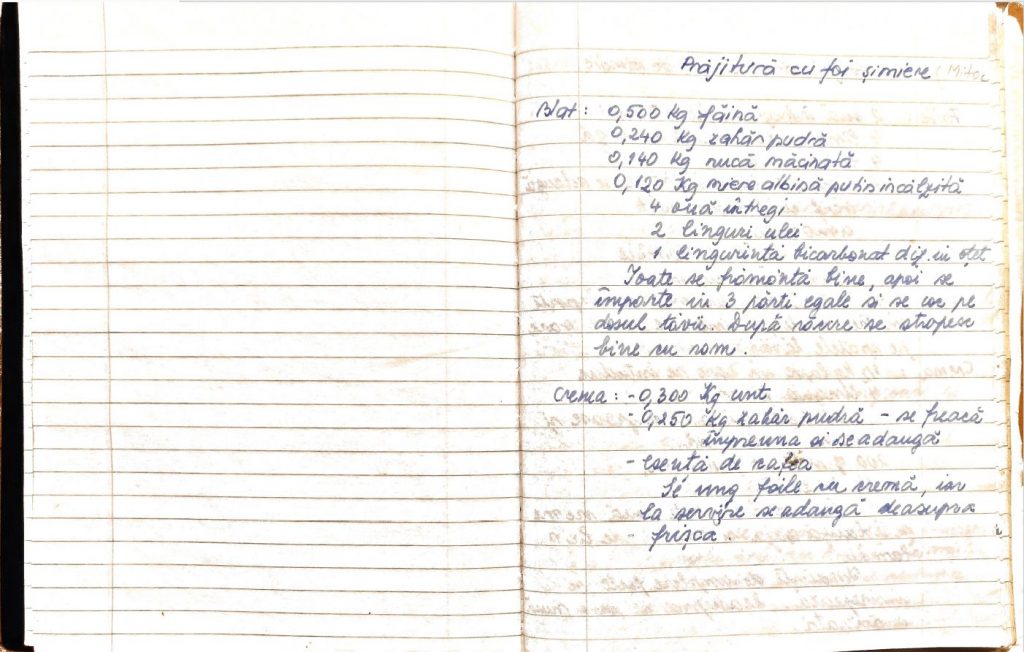 Prăjitură cu foi și miere (Mitoc
Blat: 0,500 Kg făină
0,240 Kg zahăr pudră
0,140 Kg nucă măcinată
0,120 Kg miere albină puțin incălzită
4 ouă întregi
2 linguri ulei
1 lingurință bicarbonat diz. in oțet
Toate se frământă bine, apoi se
împarte in 3 părti egale si se coc pe
dosul tăvii. După răcire se stropesc
bine cu rom.
Crema: - 0,300 Kg unt
- 0,250 Kg zahăr pudră - se freacă
împreuna si se adaugă
- esență de cafea
Se ung foile cu cremă, iar
la servire se adaugă deasupra
- frișca.